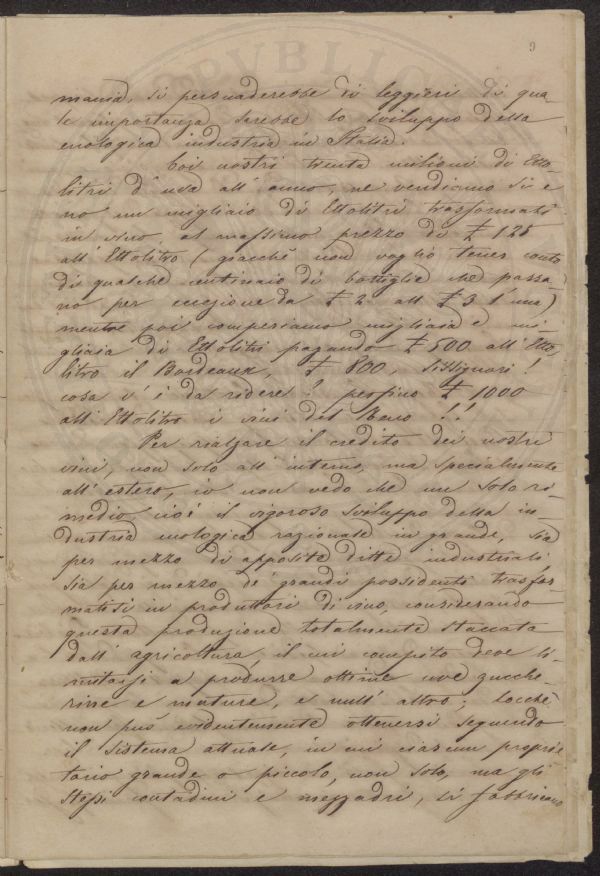 9
mania, si persuaderebbe di leggieri di qua-
le importanza sarebbe lo sviluppo della
enologica industria in Italia.
Coi nostri trenta milioni di Etto-
litri d'uva all'anno, ne vendiamo sì e
no un migliaio di Ettolitri trasformati
in vino al massimo prezzo di £ 125
all'Ettolitro (giacchè non voglio tener conto
di qualche centinaio di bottiglie che passa-
no per eccezione da £ 2 all £ 3 l'una)
mentre poi comperiamo migliaia e mi-
gliaia di Ettolitri pagando £ 500 all'Etto-
litro il Bordeaux, £ 800, Sissignori!
cosa v'è da ridere? perfino £ 1000
all'Ettolitro i vini del Reno!!
Per rialzare il credito dei nostri
vini, non solo all'interno, ma specialmente
all'estero, io non vedo che un solo ri-
medio cioè il vigoroso sviluppo della in-
dustria enologica razionale in grande, sia
per mezzo di apposite ditte industriali,
sia per mezzo de' grandi possidenti trasfor-
matisi in produttori di vino, considerando
questa produzione totalmente staccata
dall'agricoltura, il cui compito deve li-
mitarsi a produrre ottime uve zucche-
rine e mature, e null'altro; locchè
non può evidentemente ottenersi seguendo
il sistema attuale, in cui ciascun proprie-
tario grande o piccolo, non solo, ma gli
stessi contadini e mezzadri, si fabbricano
PVBLIC